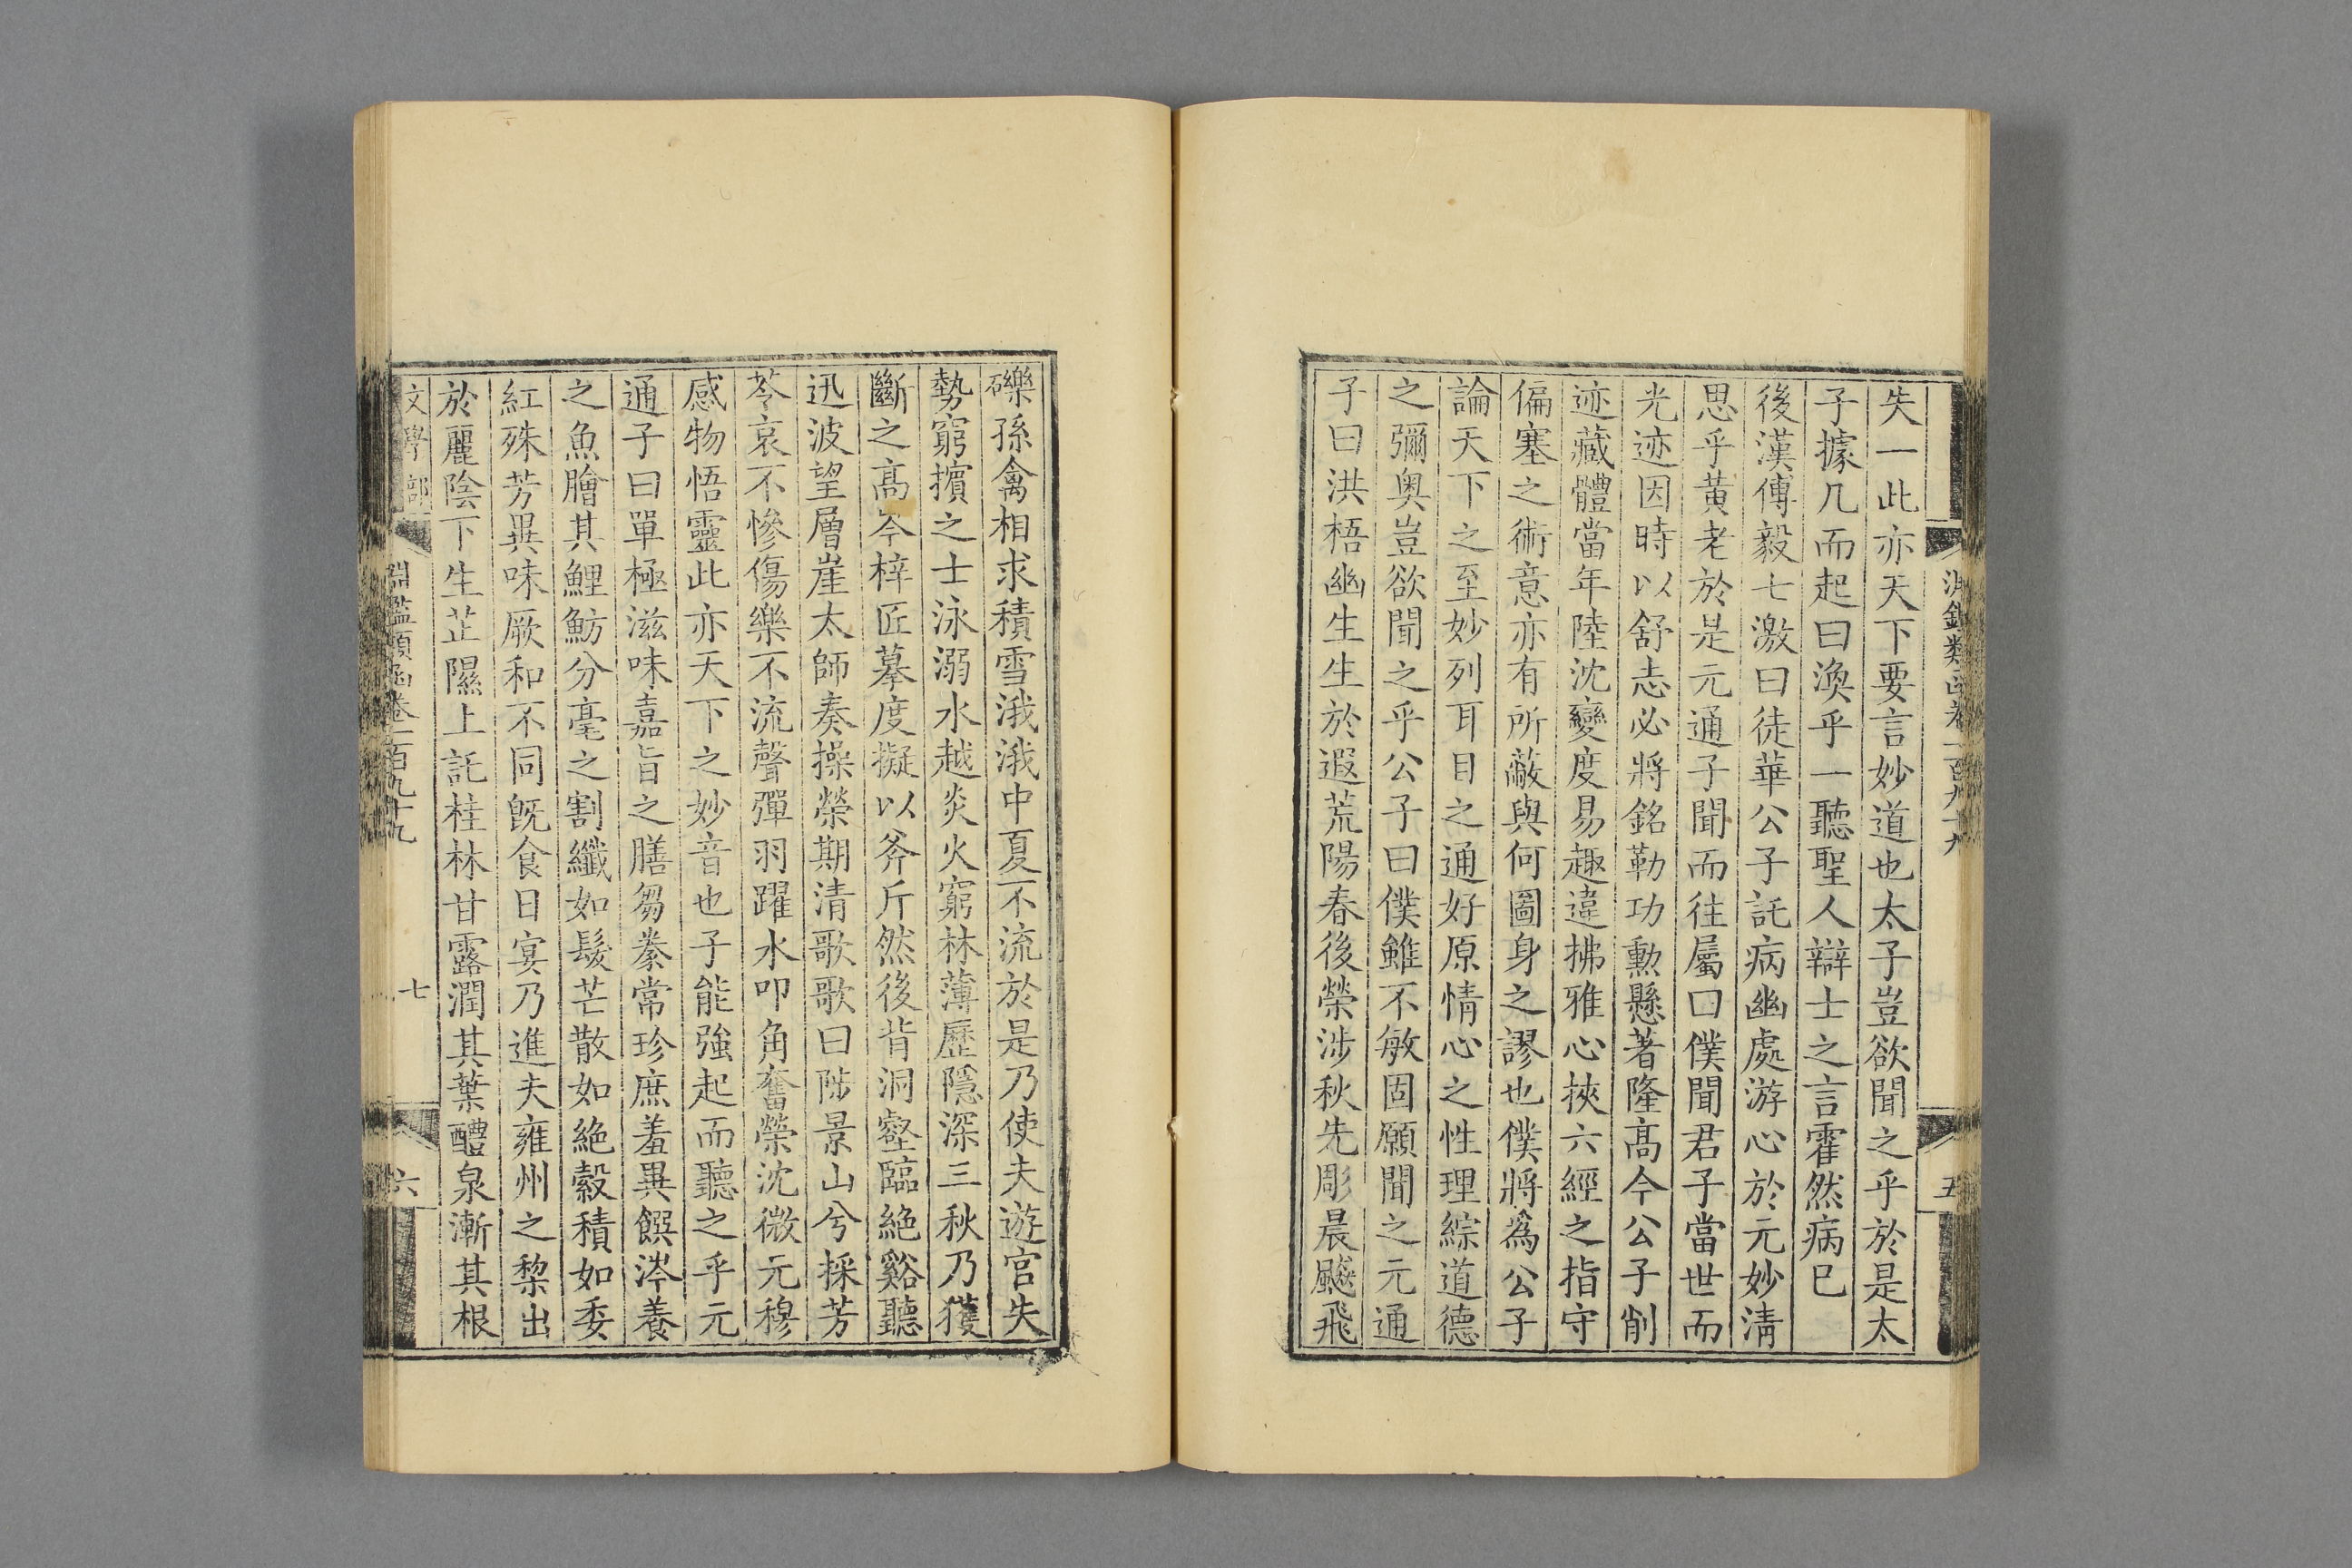 淵鑑類函卷一百九十九
五
失一此亦天下要言妙道也太子豈欲聞之乎於是太
子據几而起曰渙乎一聽聖人辯士之言霍然病已
後漢傅毅七激曰徒華公子託病幽處游心於元妙淸
思乎黃老於是元通子聞而往屬曰僕聞君子當世而
光迹因時以舒志必將銘勒功勲懸著隆高今公子削
迹藏體當年陸沈變度易趣違拂雅心挾六經之指守
偏塞之術意亦有所蔽與何圖身之謬也僕將爲公子
論天下之至妙列耳目之通好原情心之性理綜道德
之彌奥豈欲聞之乎公子曰僕雖不敏固願聞之元通
子曰洪梧幽生生於遐荒陽春後榮涉秋先彫晨飇飛
礫孫禽相求積雪涐涐中夏不流於是乃使夫遊宦失
勢窮擯之士泳溺水越炎火窮林薄歷隱深三秋乃獲
斷之高岑梓匠摹度擬以斧斤然後背洞壑臨絶谿聽
迅波望層崖太師奏操榮期清歌歌曰陟景山兮採芳
苓哀不慘傷樂不流聲彈羽躍水叩角奮榮沈微元穆
感物悟靈此亦天下之妙音也子能強起而聽之乎元
通子曰單極滋味嘉旨之膳芻豢常珍庶羞異饌涔養
之魚膾其鯉魴分毫之割纖如髮芒散如絶縠積如委
紅殊芳異味厥和不同旣食日宴乃進夫雍州之棃出
於麗陰下生芷隰上託桂林甘露潤其葉醴泉漸其根
文學部
淵鑑類函卷一百九十九
七
六